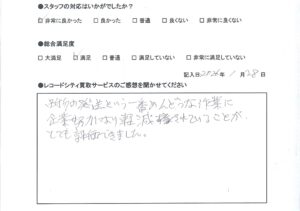 ●スタッフの対応はいかがでしたか？
□ 非常に良かった □ 良かった □ 普通 □ 良くない □ 非常に良くない
●総合満足度
□ 大満足 □ 満足 □ 普通 □ 満足していない □ 非常に満足していない
記入日 年 1月28日
●レコードシティ買取サービスのご感想を聞かせてください
という一番めんどうな作業に
企業努力により軽減 されていることが
とても評価できました。